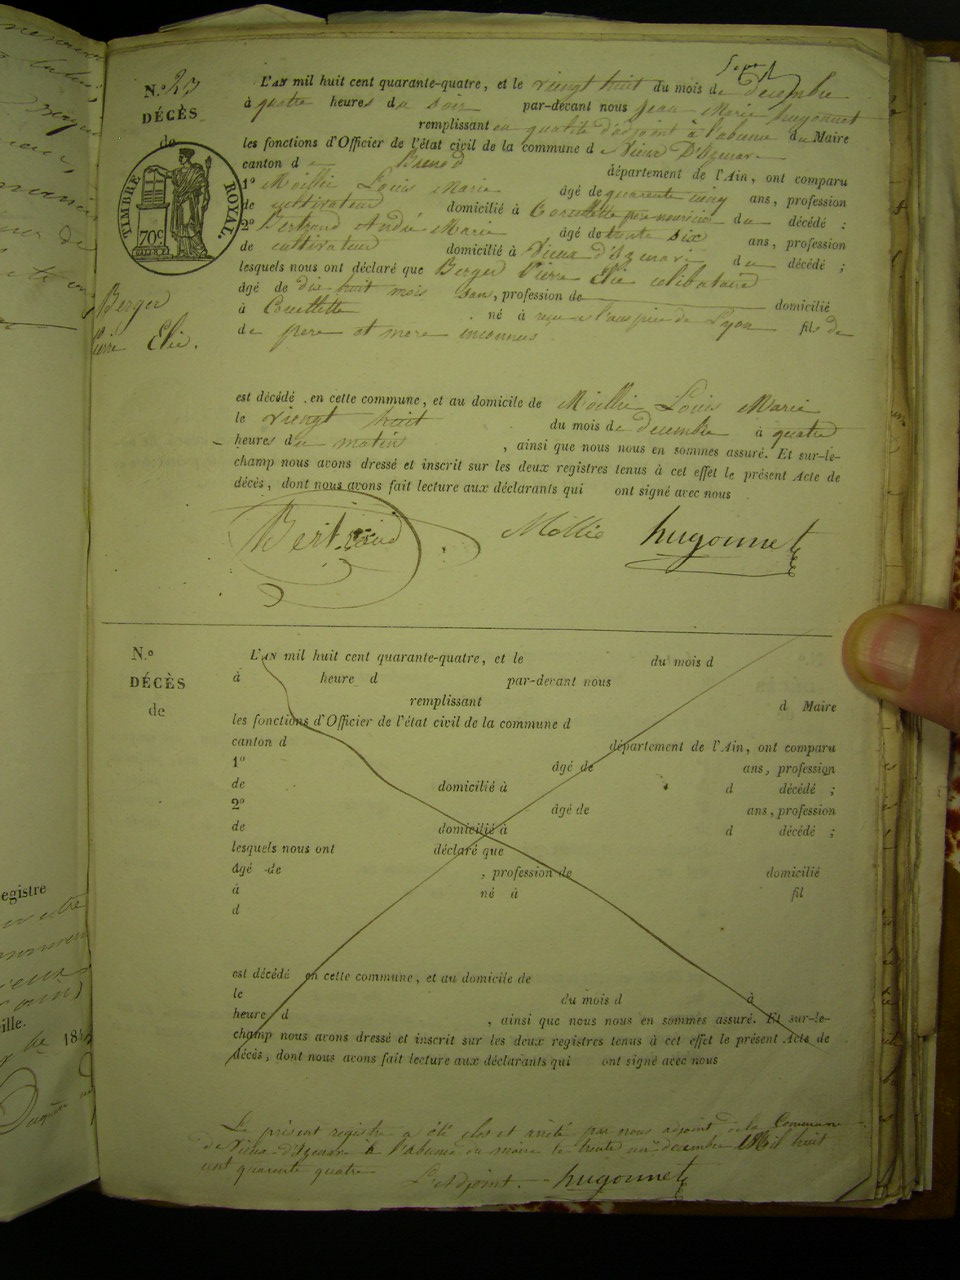 N.º 23
DÉCÈS
de
TIMBRE ROYAL.
70c
Berger
Pierre Elie.
L'AN mil huit cent quarante-quatre, et le vingt huit du mois de decembre
à quatre heures du soir par-devant nous Jean Marie hugonnet
remplissant en qualité d'adjoint à l'absence du Maire
les fonctions d'Officier de l'état civil de la commune d Vieux D'Izenave
canton de Brenod département de l'Ain, ont comparu
1º Moillie Louis Marie âgé de quarente cinq ans, profession
de cultivateur domicilié à Corcelette du décédé ;
2º Bertrand André Marie âgé de trente six ans, profession
de cultivateur domicilié à Vieux d'Izenave du décédé ;
lesquels nous ont déclaré que Berger Pierre Elie celibataire
âgé de dix huit mois ans, profession de domicilié
à né à l'auspice de Lyon fils de
de pere et mere inconnus
est décédé en cette commune, et au domicile de Moillie Louis Marie
le vingt huit du mois de decembre à quatre
heures du matin , ainsi que nous nous en sommes assuré. Et sur-le-
champ nous avons dressé et inscrit sur les deux registres tenus à cet effet le présent Acte de
décès, dont nous avons fait lecture aux déclarants qui ont signé avec nous
Bertrand Mollie hugonnet
N.º
DÉCÈS
de
L'AN mil huit cent quarante-quatre, et le du mois d
à heure d par-devant nous
remplissant d Maire
les fonctions d'Officier de l'état civil de la commune d
canton d département de l'Ain, ont comparu
1º âgé de ans, profession
de domicilié à d décédé ;
2º âgé de ans, profession
de domicilié à d décédé ;
lesquels nous ont déclaré que
âgé de , profession de domicilié
à né à fil
d
est décédé en cette commune, et au domicile de
le du mois d à
heure d , ainsi que nous nous en sommes assuré. Et sur-le-
champ nous avons dressé et inscrit sur les deux registres tenus à cet effet le présent Acte de
décès, dont nous avons fait lecture aux déclarants qui ont signé avec nous
Le présent registre a été clos et arrêté par nous adjoint de la Commune
de Vieux-d'Izenave à l'absence du maire le trente un decembre mil huit
cent quarente quatre
L'adjoint. hugonnet
egistre
ille.